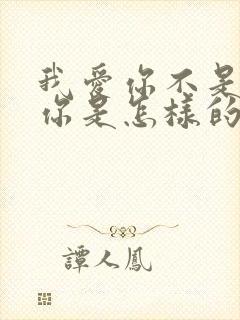 我愛你不是
你是怎樣的
譚人鳳